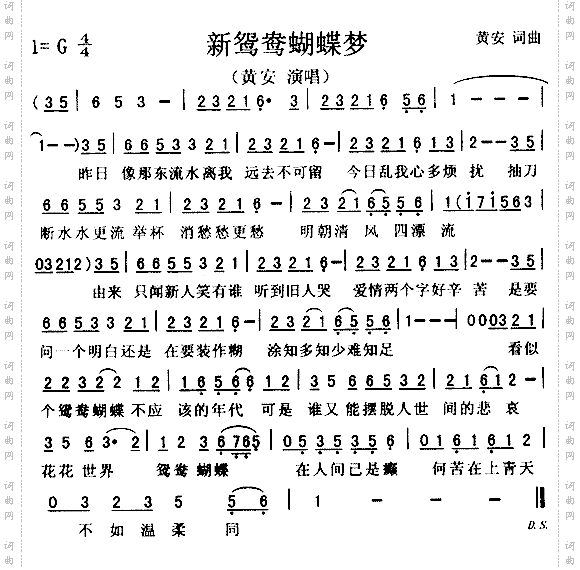 1=G 4/4
新鸳鸯蝴蝶梦
黄安 词曲
（黄安 演唱）
(3 5 | 6 5 3 - | 2 3 2 1 6· 3 | 2 3 2 1 6 5 6 | 1 - - - |
1 - - ) 3 5 | 6 6 5 3 3 2 1 | 2 3 2 1 6 - | 1 3 4 · 3 1 3 | 2 - - 3 5 |
昨日 像那东流水离我 远去不可留 今日乱我心多烦 扰 抽刀
6 6 5 5 3 2 1 | 2 3 2 1 6 - | 2 3 2 1 6 5 6 5 6 | 1 ( 1 7 1 5 6 3
断水水更流 举杯 消愁愁更愁 明朝清 风 四漂 流
0 3 2 1 2 ) 3 5 | 6 6 5 3 3 2 1 | 2 3 2 1 6 - | 1 3 4 · 3 1 3 | 2 - - 3 5 |
由来 只闻新人笑有谁 听到旧人哭 爱情两个字好辛 苦 是要
6 6 5 3 3 2 1 | 2 3 2 1 6 - | 2 3 2 1 6 5 6 5 6 | 1 - - - | 0 0 0 3 2 1
问一个明白还是 在要装作糊 涂知多知少难知足 看似
2 2 3 2 2 3 2 1 2 | 1 6 5 6 5 6 1 | 2 2 3 2 2 3 2 3 5 | 2 1 6 1 2 - |
个鸳鸯蝴蝶 不应 该的年代 可是 谁又 能摆脱人世 间的悲 哀
3 5 6 3· 2 | 1 2 3 6 7 6 5 | 0 5 3 5 3 5 3 5 | 0 1 6 1 6 1 6 1 |
花花 世界 鸳鸯 蝴蝶 在人间已是癫 何苦在上青天
0 3 2 3 | 5 5 5 6 | 1 - - - ‖
不 如 温 柔 同
D.S.
词曲网
词曲网
词曲网
词曲网
词曲网
词曲网
词曲网
词曲网
词曲网
词曲网